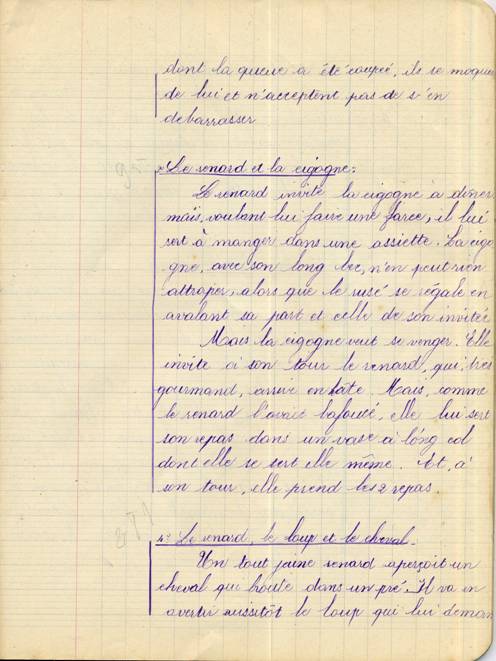 dont la queue a été coupée, ils se moque
de lui et n'acceptent pas de s'en
debarrasser
Le renard et la cigogne:
Le renard invite la cigogne à diner
mais, voulant lui faire une farce, il lui
sert à manger dans une assiette. La cigo
gne, avec son long bec, n'en peut rien
attraper, alors que le rusé se régale en
avalant sa part et celle de son invitée
Mais la cigogne veut se venger. Elle
invite à son tour le renard, qui, très
gourmand, arrive en hâte Mais, comme
le renard l'avait bafouée, elle lui sert
son repas dans un vase à long col
dont elle se sert elle même. Et, à
son tour, elle prend les 2 repas
4º Le renard, le loup et le cheval.
Un tout jeune renard aperçoit un
cheval qui broute dans un pré. Il va en
avertir aussitôt le loup qui lui deman